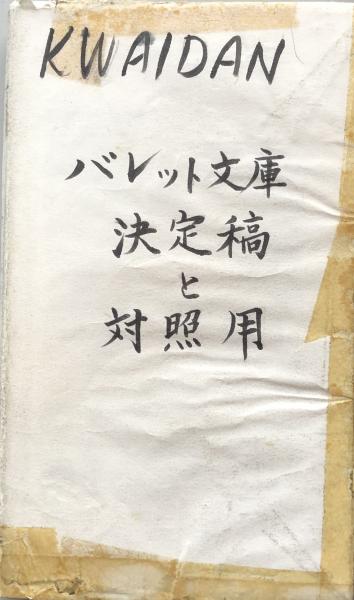 KWAIDAN
バレット文庫
決定稿
と
対照用